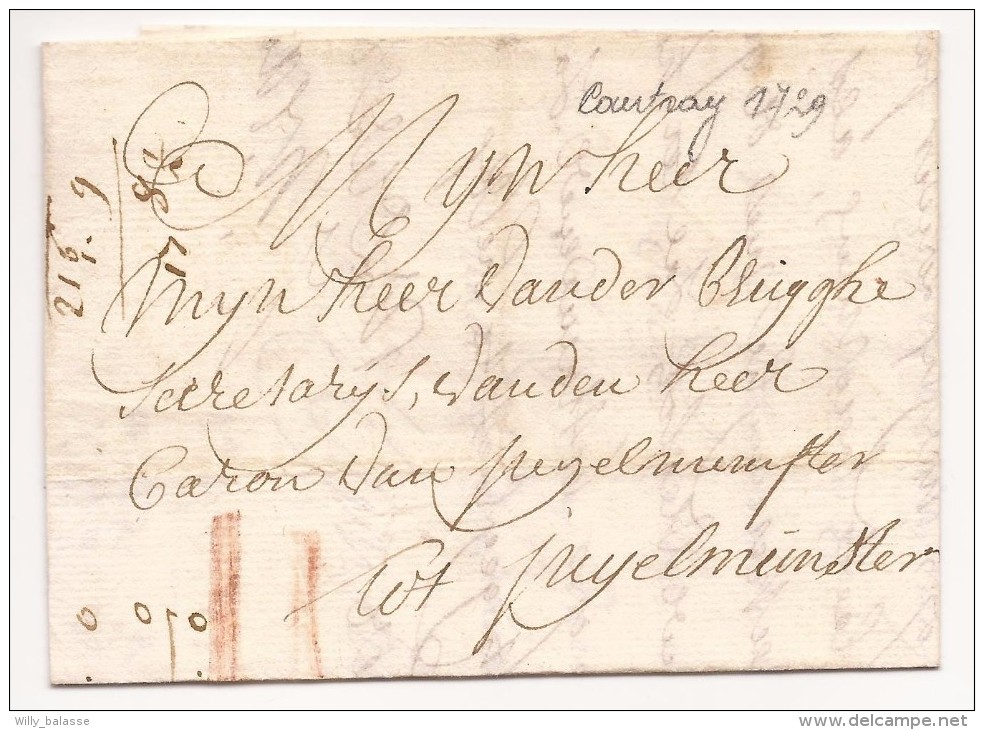 Courtray 1729
Mynheer
Mynheer vander Brugghe
Secretarijs, vanden heer
Baron van Ingelmunster
tot Ingelmunster
Willy_balasse
delcampe.net